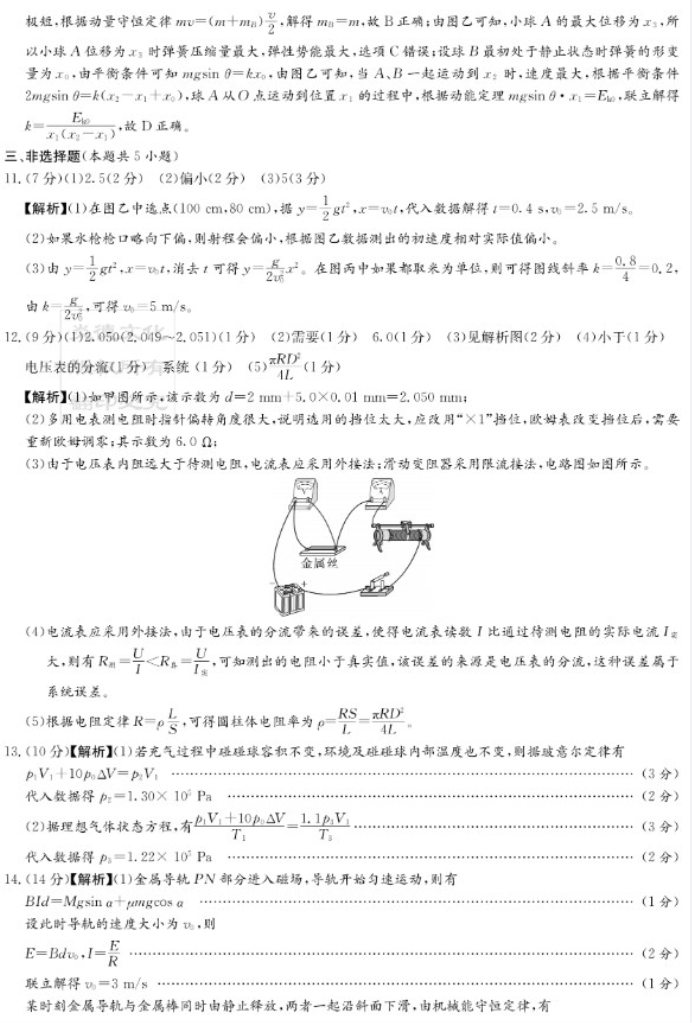 极短,根据动量守恒定律 mv=(m+mB)v/2,解得 mB=m,故 B 正确;由图乙可知,小球 A 的最大位移为 x3,所
以小球 A 位移为 x3 时弹簧压缩量最大,弹性势能最大,选项 C 错误;设球 B 最初处于静止状态时弹簧的形变
量为 x0,由平衡条件可知 mgsin θ=kx0,由图乙可知,当 A、B 一起运动到 x2 时,速度最大,根据平衡条件
2mgsin θ=k(x2-x1+x0),球 A 从 O 点运动到位置 x1 的过程中,根据动能定理 mgsin θ·x1=Ek0,联立解得
k=Ek0/x1(x2-x1),故 D 正确。
三、非选择题(本题共 5 小题)
11.(7 分)(1)2.5(2 分) (2)偏小(2 分) (3)5(3 分)
【解析】(1)在图乙中选点(100 cm,80 cm),据 y=1/2gt²,x=v0t,代入数据解得 t=0.4 s,v0=2.5 m/s。
(2)如果水枪枪口略向下偏,则射程会偏小,根据图乙数据测出的初速度相对实际值偏小。
(3)由 y=1/2gt²,x=v0t,消去 t 可得 y=g/2v0²x²。在图丙中如果都取米为单位,则可得图线斜率 k=0.8/4=0.2,
由 k=g/2v0²,可得 v0=5 m/s。
12.(9 分)(1)2.050(2.049~2.051)(1 分) (2)需要(1 分) 6.0(1 分) (3)见解析图(2 分) (4)小于(1 分)
电压表的分流(1 分) 系统(1 分) (5)πRD²/4L(1 分)
【解析】(1)如甲图所示,该示数为 d=2 mm+5.0×0.01 mm=2.050 mm;
(2)多用电表测电阻时指针偏转角度很大,说明选用的挡位太大,应改用“×1”挡位,欧姆表改变挡位后,需要
重新欧姆调零;其示数为 6.0 Ω;
(3)由于电压表内阻远大于待测电阻,电流表应采用外接法;滑动变阻器采用限流接法,电路图如图所示。
金属丝
- +
(4)电流表应采用外接法,由于电压表的分流带来的误差,使得电流表读数 I 比通过待测电阻的实际电流 I实
大,则有 R测=U/I<R真=U/I实,可知测出的电阻小于真实值,该误差的来源是电压表的分流,这种误差属于
系统误差。
(5)根据电阻定律 R=ρL/S,可得圆柱体电阻率为 ρ=RS/L=πRD²/4L。
13.(10 分)【解析】(1)若充气过程中碰碰球容积不变,环境及碰碰球内部温度也不变,则据玻意尔定律有
p1V1+10p0ΔV=p2V1 ……(3 分)
代入数据得 p2=1.30×10⁵ Pa ……(2 分)
(2)据理想气体状态方程,有p1V1+10p0ΔV/T1=1.1p3V1/T3……(3 分)
代入数据得 p3=1.22×10⁵ Pa ……(2 分)
14.(14 分)【解析】(1)金属导轨 PN 部分进入磁场,导轨开始匀速运动,则有
BId=Mgsin α+μmgcos α ……(1 分)
设此时导轨的速度大小为 v0,则
E=Bdv0,I=E/R ……(2 分)
联立解得 v0=3 m/s ……(1 分)
某时刻金属导轨与金属棒同时由静止释放,两者一起沿斜面下滑,由机械能守恒定律,有